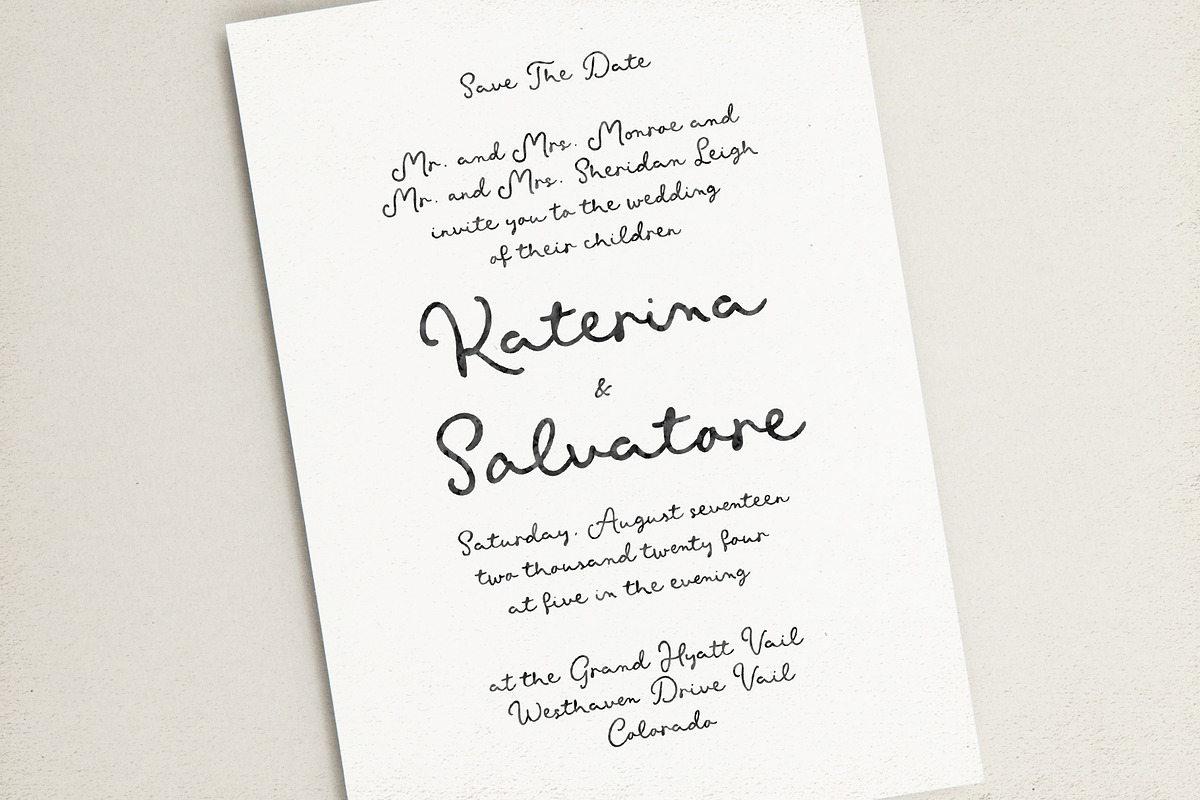 Save The Date
Mr. and Mrs. Monroe and
Mr. and Mrs. Sheridan Leigh
invite you to the wedding
of their children
Katerina
&
Salvatore
Saturday, August seventeen
two thousand twenty four
at five in the evening
at the Grand Hyatt Vail
Westhaven Drive Vail
Colorado